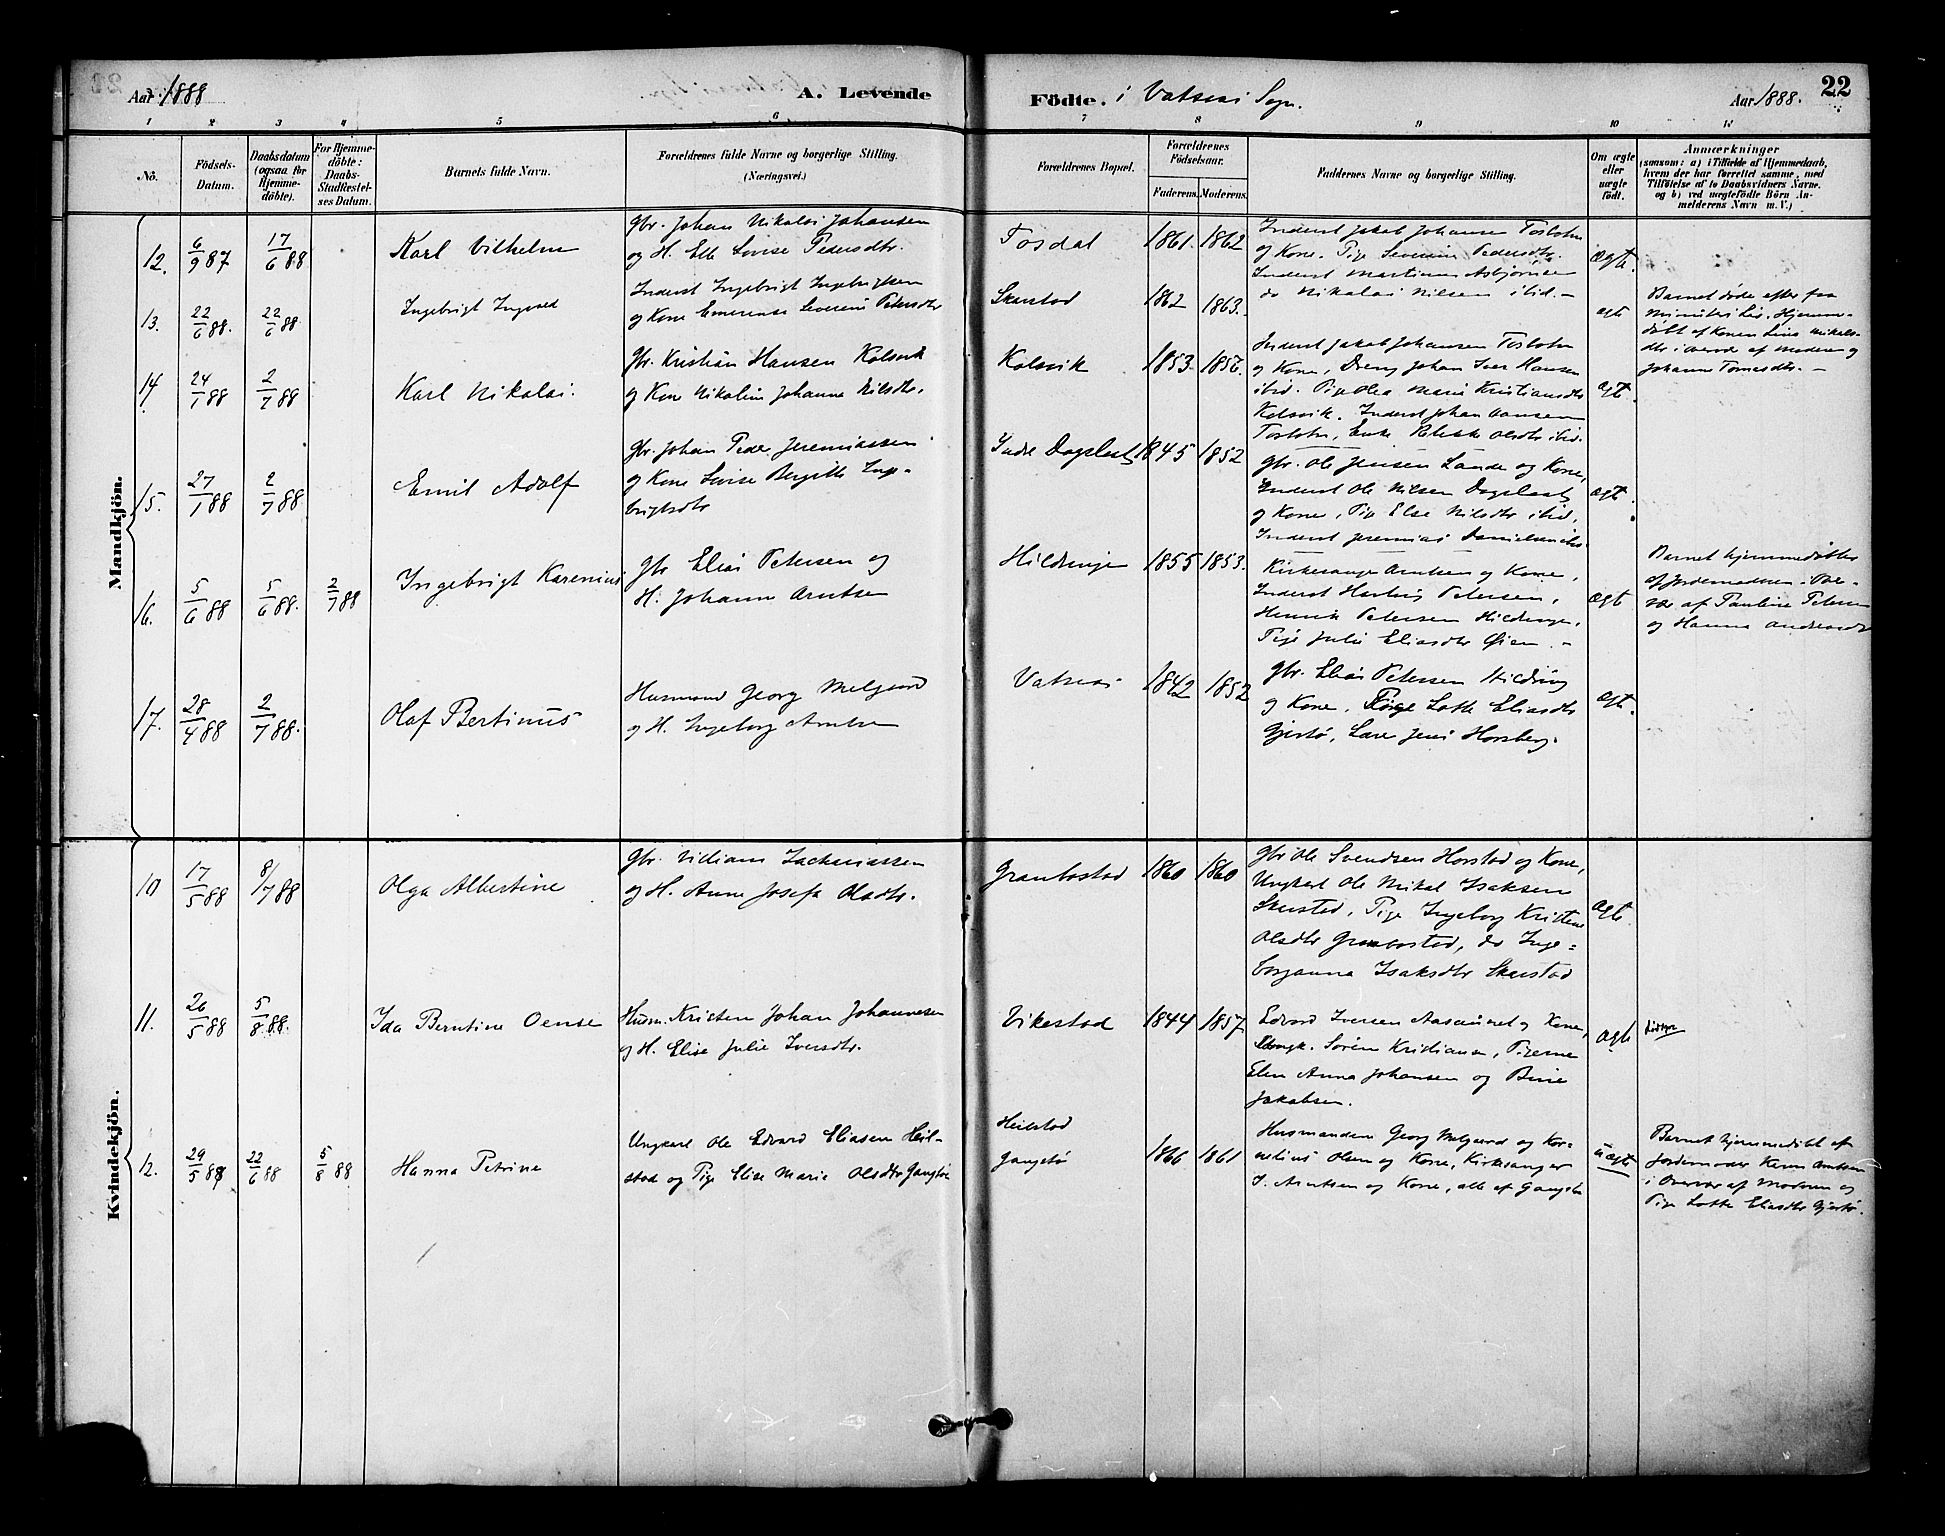 Aar 1888
A. Levende
Födte. i Vatsaas Sogn.
Aar 1888.
22
1 2 3 4 5 6 7 8 9 10 11
No.
Födsels-
Datum.
Daabsdatum
(ogsaa for
Hjemme-
döbte).
For Hjemme-
döbte:
Daabs-
Stadfæstel-
ses Datum.
Barnets fulde Navn.
Forældrenes fulde Navne og borgerlige Stilling.
(Næringsvei.)
Forældrenes Bopæl.
Forældrenes
Födselsaar.
Faderens. Moderens.
Faddernes Navne og borgerlige Stilling.
Om ægte
eller
uægte
födt.
Anmærkninger
(saasom: a) i Tilfælde af Hjemmedaab,
hvem der har forrettet samme, med
Tilföielse af to Daabsvidners Navne.
og b) ved uægtefödte Börn An-
melderens Navn m. V.)
Mandkjön.
12. 6/9 87 17/6 88 Karl Vilhelm
Gbr. Johan Nikolai Johansen
og H. Else Lovise Pedersdtr.
Tosdal 1861. 1862
Inderst Jakob Johansen
og Kone. Pige Severine Pedersdtr.
Inderst Martinus Asbjørnsen
do Nikolai Nilsen ibid. –
ægte.
13. 22/6 88. 22/6 88 Ingebrigt Ingvald
Inderst Ingebrigt Ingebrigtsen
og Kone Emerense Severine Petersdtr
Skarstad 1862 1863.
ægte
Barnet døde efter faa
minuters Liv. Hjemme-
døbt af Konen Lina Mikels-
dtr i overvær af Moderen og
Johanna Tomesdtr. –
14. 24/1 88 2/7 88 Karl Nikolai.
Gbr. Kristian Hansen Kolsvik
og Kone Nikoline Johanna Nilsdtr.
Kolsvik 1853. 1856.
Inderst Jakob Johansen
og Kone, Dreng Johan Iver Hansen
ibid. Pige Olea Marie Kristiansdtr
Kolsvik. Inderst Johan Hansen
Enke Olsdtr ibid.
ægte.
15. 27/1 88 2/7 88 Emil Adolf
Gbr. Johan Peder Jeremiassen
og Kone Lovise Bergitte Inge-
brigtsdtr
Indre Dagslaat 1845 1852
Gbr. Ole Jensen Lande og Kone,
Inderst Ole Nilsen Dagslaat
og Kone, Pige Else Nilsdtr ibid.
Inderst Jeremias Danielsen ibid.
ægte.
16. 5/6 88 5/6 88. 2/7 88 Ingebrigt Karenius
Gbr Elias Petersen og
H. Johanna Arntsen
Hildringen 1855 1853.
Kirkesanger Arntsen og Kone,
Inderst Hartvig Petersen,
Henrik Petersen Hildringen,
Pige Julie Eliasdtr Øien. –
ægte
Barnet hjemmedøbtes
af Jordemoderen. Over-
vær af Pauline Petersen
og Hanna Andreasdtr
17. 28/4 88 2/7 88. Olaf Bertinus
Husmand Georg Melgaard
og H. Ingeborg Arntsen
Vatsaas 1842 1852
Gbr. Elias Petersen Hildring
og Kone, Pige Lotte Eliasdtr
Gjestø, Lars Jensi Horsberg.
ægte.
Kvindekjön.
10 17/5 88 8/7 88 Olga Albertine
Gbr. Villiam Zachariassen
og H. Anne Josefa Olsdtr.
Granbostad 1860 1860
Gbr Ole Svendsen Horstad og Kone,
Ungkarl Ole Mikal Isaksen
Skarstad, Pige Ingeborg Kristine
Olsdtr Granbostad, do Inge-
borganna Isaksdtr Skarstad
ægte.
11. 26/5 88 5/8 88. Ida Berntine Oense
Husm. Kristen Johan Johannesen
og H. Elise Julie Iversdtr.
Vikestad 1844 1857.
Edvard Iversen Aasaunet og Kone,
Ungk. Søren Kristiansen, Pigerne
Elen Anna Johansen og Bine
Jakobsen.
ægte
12. 29/5 88 22/6 88 5/8 88 Hanna Petrine
Ungkarl Ole Edvard Eliasen Heil-
stad og Pige Elise Marie Olsdtr Gangstø
Heilstad
Gangstø 1866 1861
Husmanden Georg Melgaard og Kor-
nelius Olsen og Kone, Kirkesanger
I. Arntsen og Kone, alle af Gangstø
uægte
Barnet hjemmedøbt af
Jordemoder Karen Arntsen
i Overvær af Moderen og
Pige Lotte Eliasdtr Gjestø.